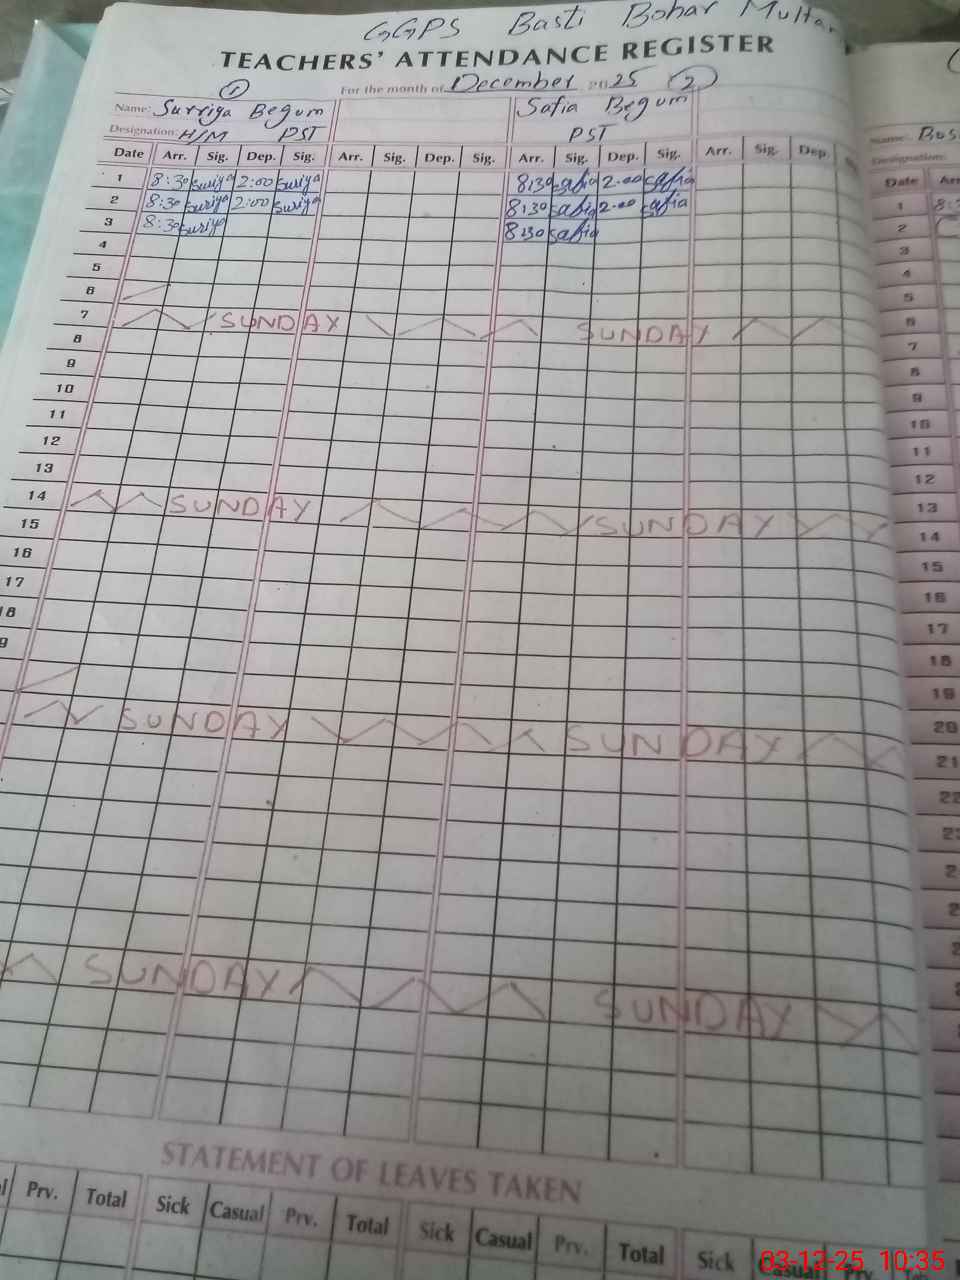 GGPS Basti Bohar Multan
TEACHERS' ATTENDANCE REGISTER
For the month of December 2025
1 2
Name: Surriya Begum Safia Begum
Designation: H/M PST PST
Date Arr. Sig. Dep. Sig. Arr. Sig. Dep. Sig. Arr. Sig. Dep. Sig. Arr. Sig. Dep.
1 8:30 Suriya 2:00 Suriya 8:30 Safia 2:00 Safia
2 8:30 Suriya 2:00 Suriya 8:30 Safia 2:00 Safia
3 8:30 Suriya 8:30 Safia
4
5
6
7 SUNDAY SUNDAY
8
9
10
11
12
13
14 SUNDAY SUNDAY
15
16
17
18
9
SUNDAY SUNDAY
SUNDAY SUNDAY
STATEMENT OF LEAVES TAKEN
Prv. Total Sick Casual Prv. Total Sick Casual Prv. Total Sick Casual Prv.
Name:
Designation:
Date Arr
1
2
3
4
5
6
7
8
9
10
11
12
13
14
15
16
17
18
19
20
21
22
03-12-25 10:35